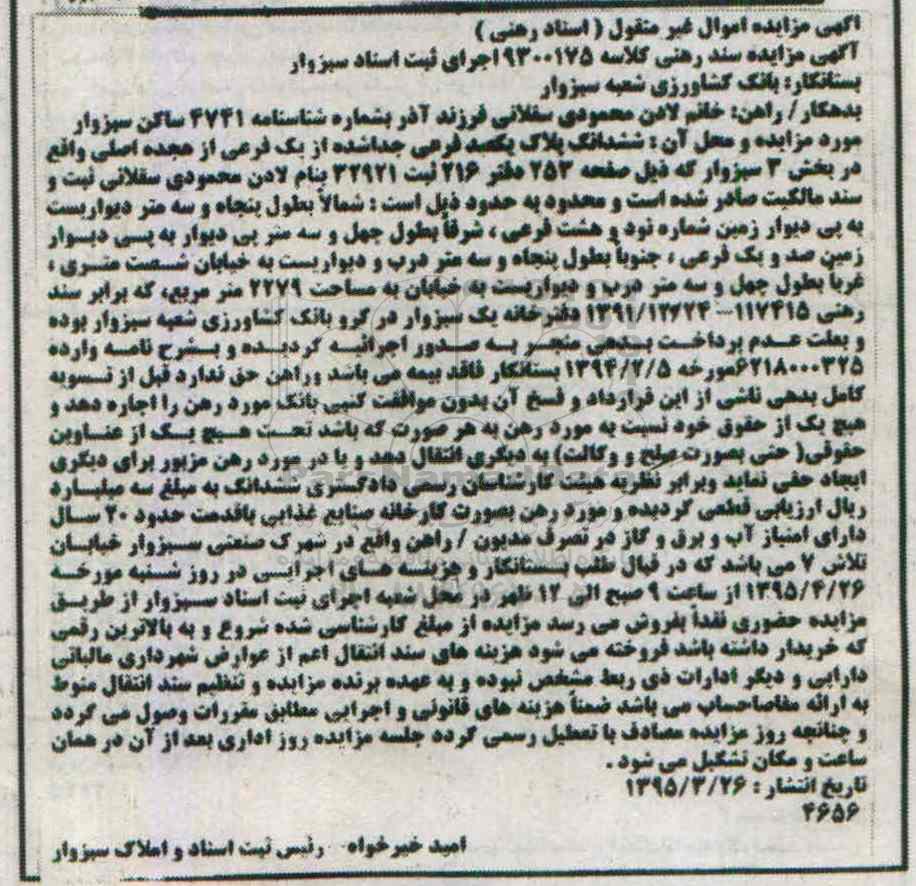 آگهی مزایده اموال غیر منقول ( اسناد رهنی )
آگهی مزایده سند رهنی کلاسه ۹۳۰۰۱۷۵ اجرای ثبت اسناد سبزوار
بستانکار: بانک کشاورزی شعبه سبزوار
بدهکار/ راهن: خانم لادن محمودی سقلانی فرزند آذر بشماره شناسنامه ۴۷۴۱ ساکن سبزوار
مورد مزایده و محل آن : ششدانگ پلاک یکصد فرعی جداشده از یک فرعی از هجده اصلی واقع
در بخش ۳ سبزوار که ذیل صفحه ۲۵۳ دفتر ۲۱۶ ثبت ۳۲۹۲۱ بنام لادن محمودی سقلانی ثبت و
سند مالکیت صادر شده است و محدود به حدود ذیل است : شمالاً بطول پنجاه و سه متر دیواریست
به پی دیوار زمین شماره نود و هشت فرعی ، شرقاً بطول چهل و سه متر پی دیوار به پسی دیوار
زمین صد و یک فرعی ، جنوباً بطول پنجاه و سه متر درب و دیواریست به خیابان شصت متری ،
غرباً بطول چهل و سه متر درب و دیواریست به خیابان به مساحت ۲۲۷۹ متر مربع، که برابر سند
رهنی ۱۱۷۴۱۵- ۱۳۹۱/۱۲/۲۴ دفترخانه یک سبزوار در گرو بانک کشاورزی شعبه سبزوار بوده
و بعلت عدم پرداخت بدهی منجر به صدور اجرائیه گردیده و بشرح نامه وارده
۶۲۱۸۰۰۰۳۲۵مورخه ۱۳۹۴/۲/۵ بستانکار فاقد بیمه می باشد وراهن حق ندارد قبل از تسویه
کامل بدهی ناشی از این قرارداد و فسخ آن بدون موافقت کتبی بانک مورد رهن را اجاره دهد و
هیچ یک از حقوق خود نسبت به مورد رهن به هر صورت که باشد تحت هیچ یک از عناوین
حقوقی( حتی بصورت صلح و وکالت) به دیگری انتقال دهد و یا در مورد رهن مزبور برای دیگری
ایجاد حقی نماید وبرابر نظریه هیئت کارشناسان رسمی دادگستری ششدانگ به مبلغ سه میلیارد
ریال ارزیابی قطعی گردیده و مورد رهن بصورت کارخانه صنایع غذایی باقدمت حدود ۲۰ سال
دارای امتیاز آب و برق و گاز در تصرف مدیون / راهن واقع در شهرک صنعتی سبزوار خیابان
تلاش ۷ می باشد که در قبال طلب بستانکار و هزینه های اجرایی در روز شنبه مورخه
۱۳۹۵/۴/۲۶ از ساعت ۹ صبح الی ۱۲ ظهر در محل شعبه اجرای ثبت اسناد سبزوار از طریق
مزایده حضوری نقداً بفروش می رسد مزایده از مبلغ کارشناسی شده شروع و به بالاترین رقمی
که خریدار داشته باشد فروخته می شود هزینه های سند انتقال اعم از عوارض شهرداری مالیاتی
دارایی و دیگر ادارات ذی ربط مشخص نبوده و به عهده برنده مزایده و تنظیم سند انتقال منوط
به ارائه مفاصاحساب می باشد ضمناً هزینه های قانونی و اجرایی مطابق مقررات وصول می گردد
و چنانچه روز مزایده مصادف با تعطیل رسمی گردد جلسه مزایده روز اداری بعد از آن در همان
ساعت و مکان تشکیل می شود .
تاریخ انتشار : ۱۳۹۵/۳/۲۶
۴۶۵۶
امید خیرخواه رئیس ثبت اسناد و املاک سبزوار